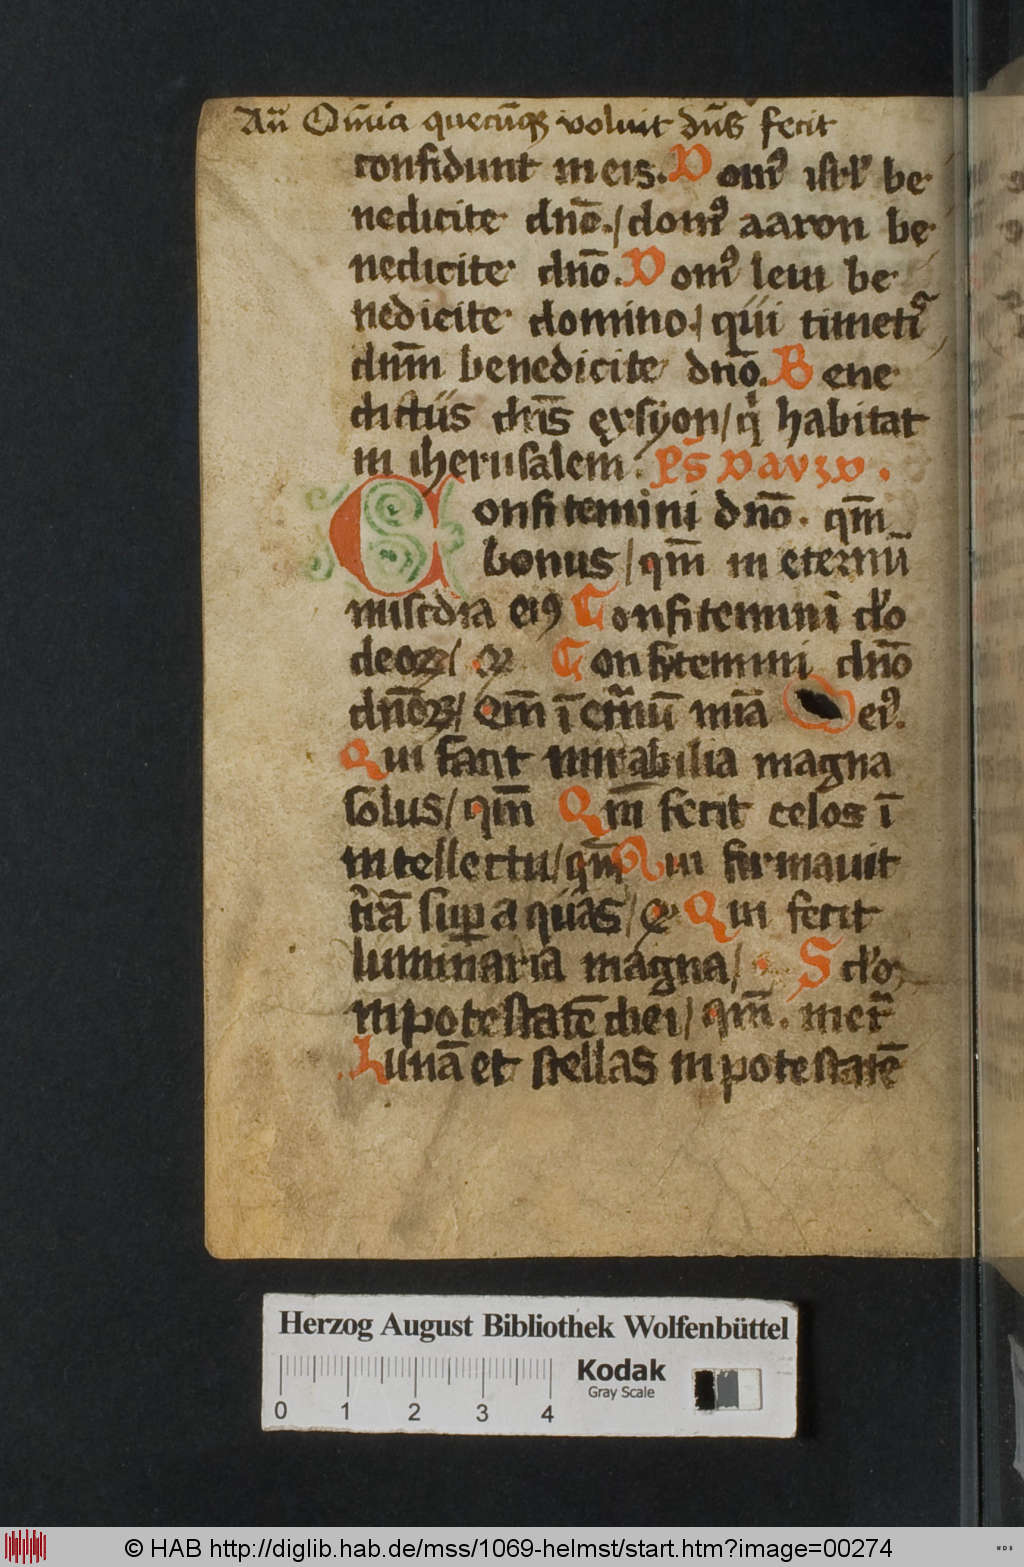 An̄ Om̄ia quecūqꝫ voluit dn̄s fecit
confidunt in eis. Domꝰ isrl' be
nedicite dn̄o./ domꝰ aaron be
nedicite dn̄o. Domꝰ leui be
nedicite domino./ qui timetis
dnm̄ benedicite dn̄o. Bene
dictus dn̄s ex syon/ qi habitat
in iherusalem. ps̄ dauid.
Confitemini dn̄o. qm̄
bonus/ qm̄ in eternū
miscdia eiꝰ Confitemini do
deoꝝ/ Confitemini dn̄o
dn̄oꝝ/ qm̄ ī et̄nū mīa eiꝰ.
Qui facit mirabilia magna
solus/ qm̄ Qui fecit celos ī
intellectu/ qm̄ Qui firmauit
t̄rā suꝑ aquas/ Qui fecit
luminaria magna/ Solē
in potestatē diei/ qm̄. in et̄
Lunā et stellas in potestatē
Herzog August Bibliothek Wolfenbüttel
Kodak
Gray Scale
0 1 2 3 4
© HAB http://diglib.hab.de/mss/1069-helmst/start.htm?image=00274